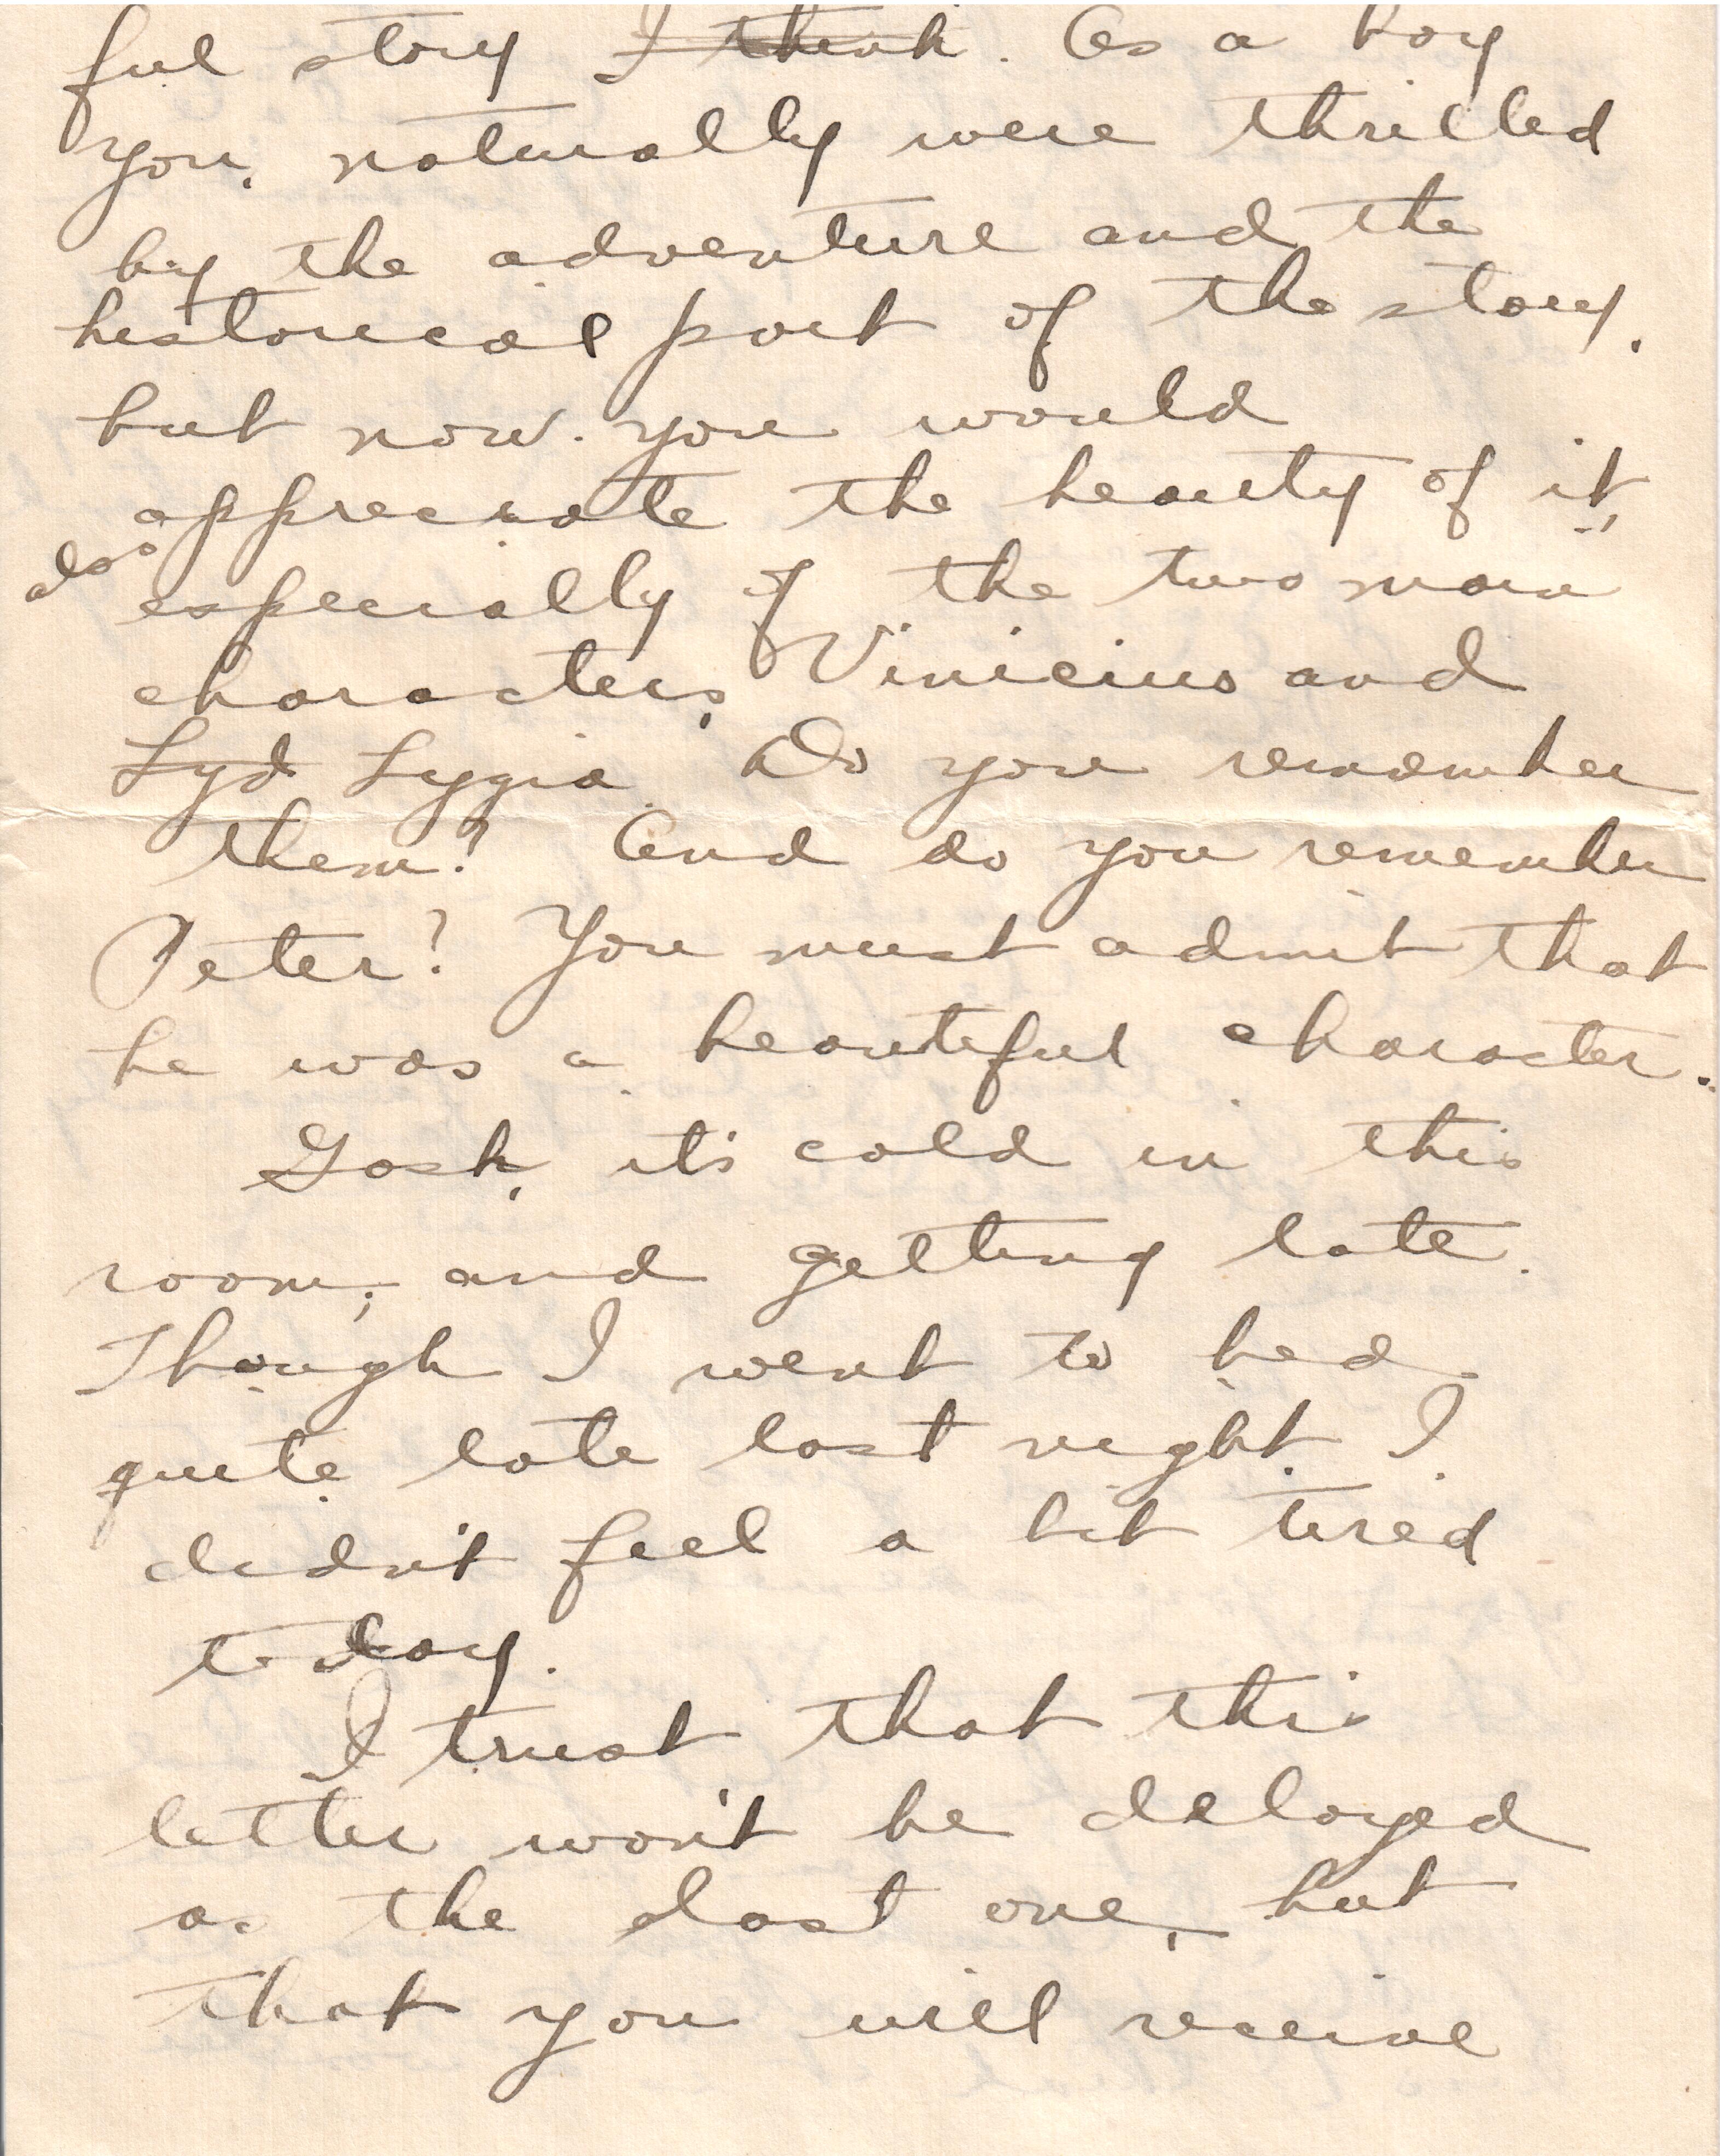 ful story ~~I think~~. As a boy
you, naturally were thrilled
by the adventure and the
historical part of the story.
but now. you would
appreciate the beauty of it,
also
especially of the two main
characters, Vinicius and
~~Lyd~~ Lygia. Do you remember
them? And do you remember
Peter? You must admit that
he was a beautiful character.
Gosh, it's cold in this
room, and getting late.
Though I went to bed
quite late last night I
didn't feel a bit tired
to day.
I trust that this
letter won't be delayed
as the last one, but
that you will receive